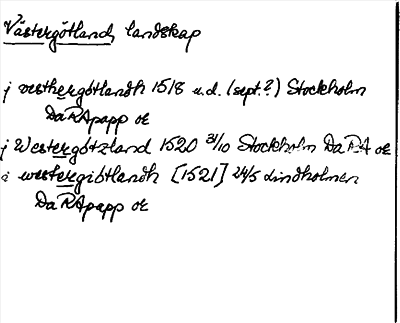 Västergötland, landskap
j vesthergötlandh 1518 u.d. (sept.?) Stockholm
DaRApapp or
j Westergötzland 1520 31/10 Stockholm DaRA or
i westergiötlandh [1521] 24/5 Lindholmen
DaRApapp or